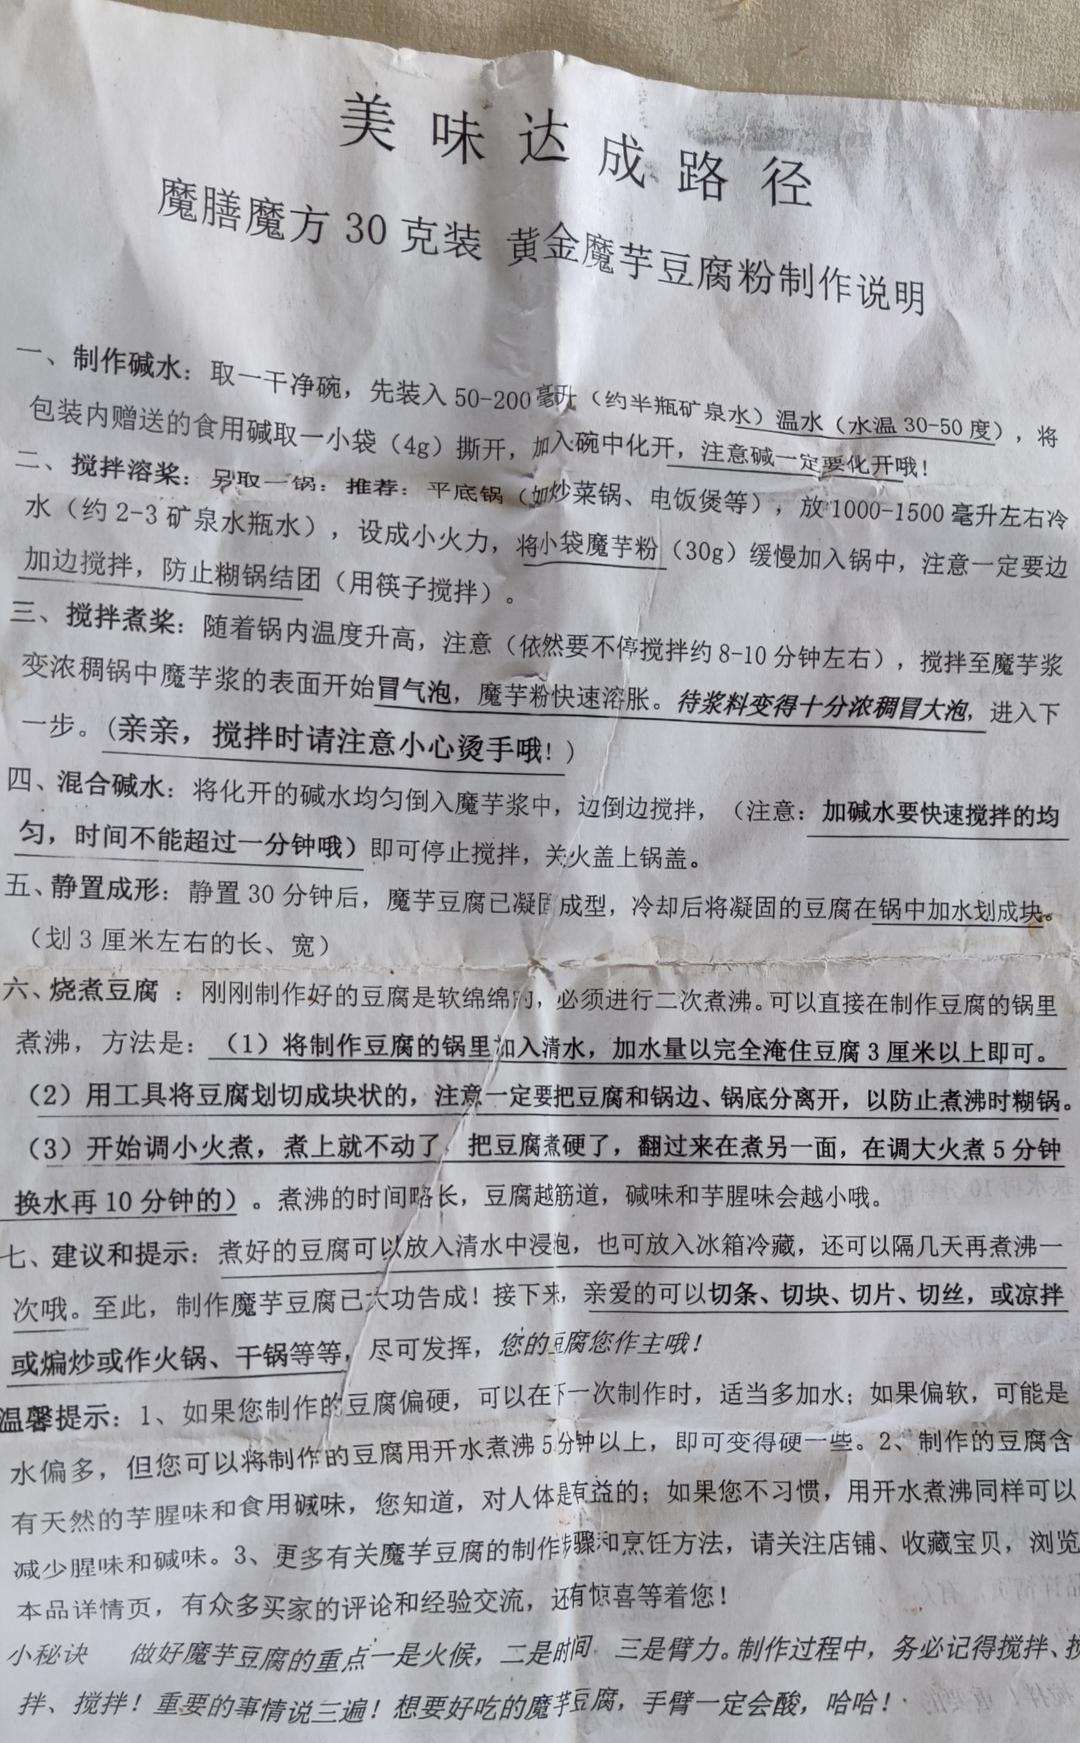 美味达成路径
魔膳魔方 30 克装 黄金魔芋豆腐粉制作说明
一、制作碱水：取一干净碗，先装入 50-200 毫升（约半瓶矿泉水）温水（水温 30-50 度），将
包装内赠送的食用碱取一小袋（4g）撕开，加入碗中化开，注意碱一定要化开哦！
二、搅拌溶桨：另取一锅：推荐：平底锅（如炒菜锅、电饭煲等），放 1000-1500 毫升左右冷
水（约 2-3 矿泉水瓶水），设成小火力，将小袋魔芋粉（30g）缓慢加入锅中，注意一定要边
加边搅拌，防止糊锅结团（用筷子搅拌）。
三、搅拌煮桨：随着锅内温度升高，注意（依然要不停搅拌约 8-10 分钟左右），搅拌至魔芋浆
变浓稠锅中魔芋浆的表面开始冒气泡，魔芋粉快速溶胀。待浆料变得十分浓稠冒大泡，进入下
一步。(亲亲，搅拌时请注意小心烫手哦！)
四、混合碱水：将化开的碱水均匀倒入魔芋浆中，边倒边搅拌，（注意：加碱水要快速搅拌的均
匀，时间不能超过一分钟哦）即可停止搅拌，关火盖上锅盖。
五、静置成形：静置 30 分钟后，魔芋豆腐已凝固成型，冷却后将凝固的豆腐在锅中加水划成块。
（划 3 厘米左右的长、宽）
六、烧煮豆腐 ：刚刚制作好的豆腐是软绵绵的，必须进行二次煮沸。可以直接在制作豆腐的锅里
煮沸，方法是：（1）将制作豆腐的锅里加入清水，加水量以完全淹住豆腐 3 厘米以上即可。
（2）用工具将豆腐划切成块状的，注意一定要把豆腐和锅边、锅底分离开，以防止煮沸时糊锅。
（3）开始调小火煮，煮上就不动了，把豆腐煮硬了，翻过来在煮另一面，在调大火煮 5 分钟
换水再 10 分钟的）。煮沸的时间略长，豆腐越筋道，碱味和芋腥味会越小哦。
七、建议和提示：煮好的豆腐可以放入清水中浸泡，也可放入冰箱冷藏，还可以隔几天再煮沸一
次哦。至此，制作魔芋豆腐已大功告成！接下来，亲爱的可以切条、切块、切片、切丝，或凉拌
或煸炒或作火锅、干锅等等，尽可发挥，您的豆腐您作主哦！
温馨提示：1、如果您制作的豆腐偏硬，可以在下一次制作时，适当多加水；如果偏软，可能是
水偏多，但您可以将制作的豆腐用开水煮沸 5 分钟以上，即可变得硬一些。2、制作的豆腐含
有天然的芋腥味和食用碱味，您知道，对人体是有益的；如果您不习惯，用开水煮沸同样可以
减少腥味和碱味。3、更多有关魔芋豆腐的制作步骤和烹饪方法，请关注店铺、收藏宝贝，浏览
本品详情页，有众多买家的评论和经验交流，还有惊喜等着您！
小秘诀 做好魔芋豆腐的重点一是火候，二是时间 三是臂力。制作过程中，务必记得搅拌、搅
拌、搅拌！重要的事情说三遍！想要好吃的魔芋豆腐，手臂一定会酸，哈哈！